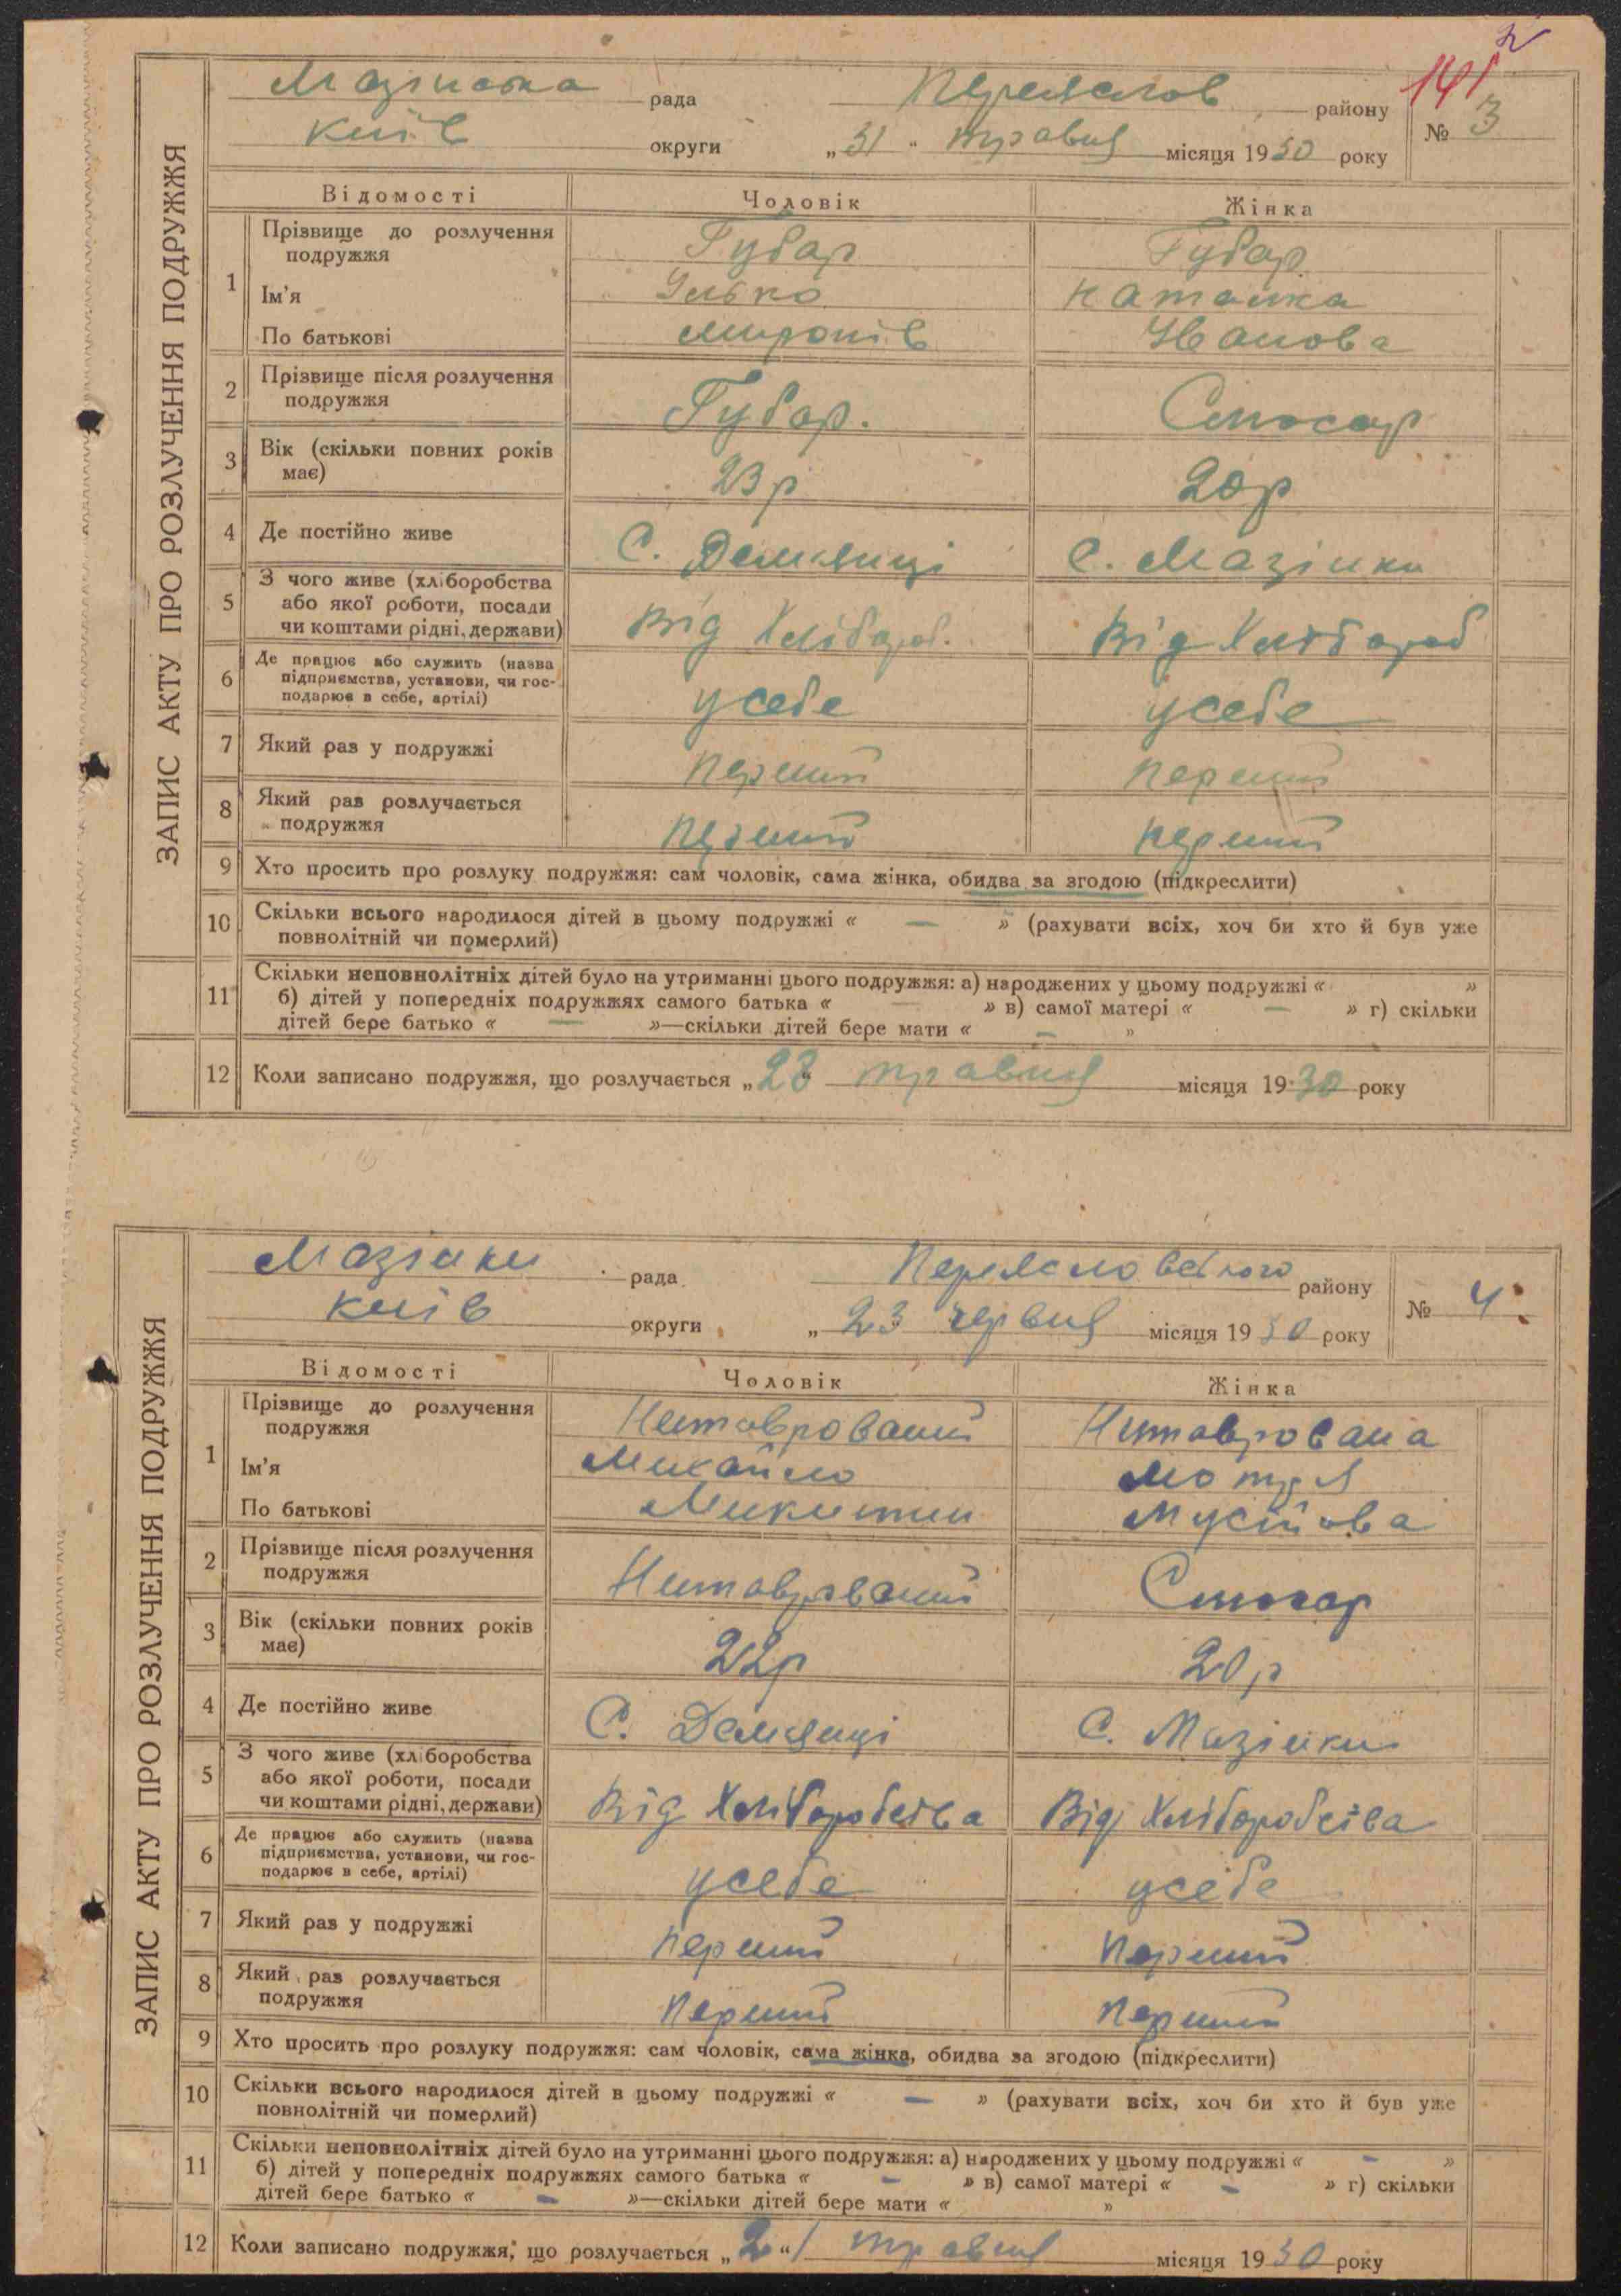 141
ЗАПИС АКТУ ПРО РОЗЛУЧЕННЯ ПОДРУЖЖЯ
Мазінська рада Переяслов району
№ 3
Київ округи „31“ травня місяця 1930 року
Відомості Чоловік Жінка
1 Прізвище до розлучення подружжя Губар Губар
Ім'я Ілько Наталка
По батькові Миронів Іванова
2 Прізвище після розлучення подружжя Губар. Слюсар
3 Вік (скільки повних років має) 23 р 20 р
4 Де постійно живе С. Демянці С. Мазінки
5 З чого живе (хліборобства або якої роботи, посади чи коштами рідні, держави) Від Хлібороб. Від Хлібороб
6 Де працює або служить (назва підприємства, установи, чи господарює в себе, артілі) усебе усебе
7 Який раз у подружжі перший перший
8 Який раз розлучається подружжя перший перший
9 Хто просить про розлуку подружжя: сам чоловік, сама жінка, обидва за згодою (підкреслити)
10 Скільки всього народилося дітей в цьому подружжі « — » (рахувати всіх, хоч би хто й був уже
повнолітній чи померлий)
11 Скільки неповнолітніх дітей було на утриманні цього подружжя: а) народжених у цьому подружжі « »
б) дітей у попередніх подружжях самого батька « — » в) самої матері « — » г) скільки
дітей бере батько « — »—скільки дітей бере мати « — »
12 Коли записано подружжя, що розлучається „28“ травня місяця 1930 року
ЗАПИС АКТУ ПРО РОЗЛУЧЕННЯ ПОДРУЖЖЯ
Мазінки рада Переясловського району
№ 4
Київ округи „23 червня місяця 1930 року
Відомості Чоловік Жінка
1 Прізвище до розлучення подружжя Нетаврований Нетаврована
Ім'я Михайло Мотря
По батькові Микитин Мусійова
2 Прізвище після розлучення подружжя Нетаврований Слюсар
3 Вік (скільки повних років має) 22 р 20 р
4 Де постійно живе С. Демянці С. Мазінки
5 З чого живе (хліборобства або якої роботи, посади чи коштами рідні, держави) Від Хліборобства Від Хліборобства
6 Де працює або служить (назва підприємства, установи, чи господарює в себе, артілі) усебе усебе
7 Який раз у подружжі перший перший
8 Який раз розлучається подружжя перший перший
9 Хто просить про розлуку подружжя: сам чоловік, сама жінка, обидва за згодою (підкреслити)
10 Скільки всього народилося дітей в цьому подружжі « — » (рахувати всіх, хоч би хто й був уже
повнолітній чи померлий)
11 Скільки неповнолітніх дітей було на утриманні цього подружжя: а) народжених у цьому подружжі « - »
б) дітей у попередніх подружжях самого батька « - » в) самої матері « - » г) скільки
дітей бере батько « - »—скільки дітей бере мати « »
12 Коли записано подружжя, що розлучається „2“1 травня місяця 1930 року